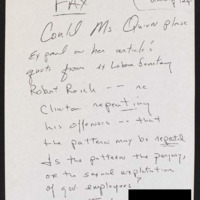 FAX
Could Ms Quinn please
expand on her article's
quote from ex Labor Secretary
Robert Reich -- re
Clinton repeating
his offenses -- that
the pattern may be repeated
Is the pattern the perjury,
or the sexual exploitation
of gov employees?